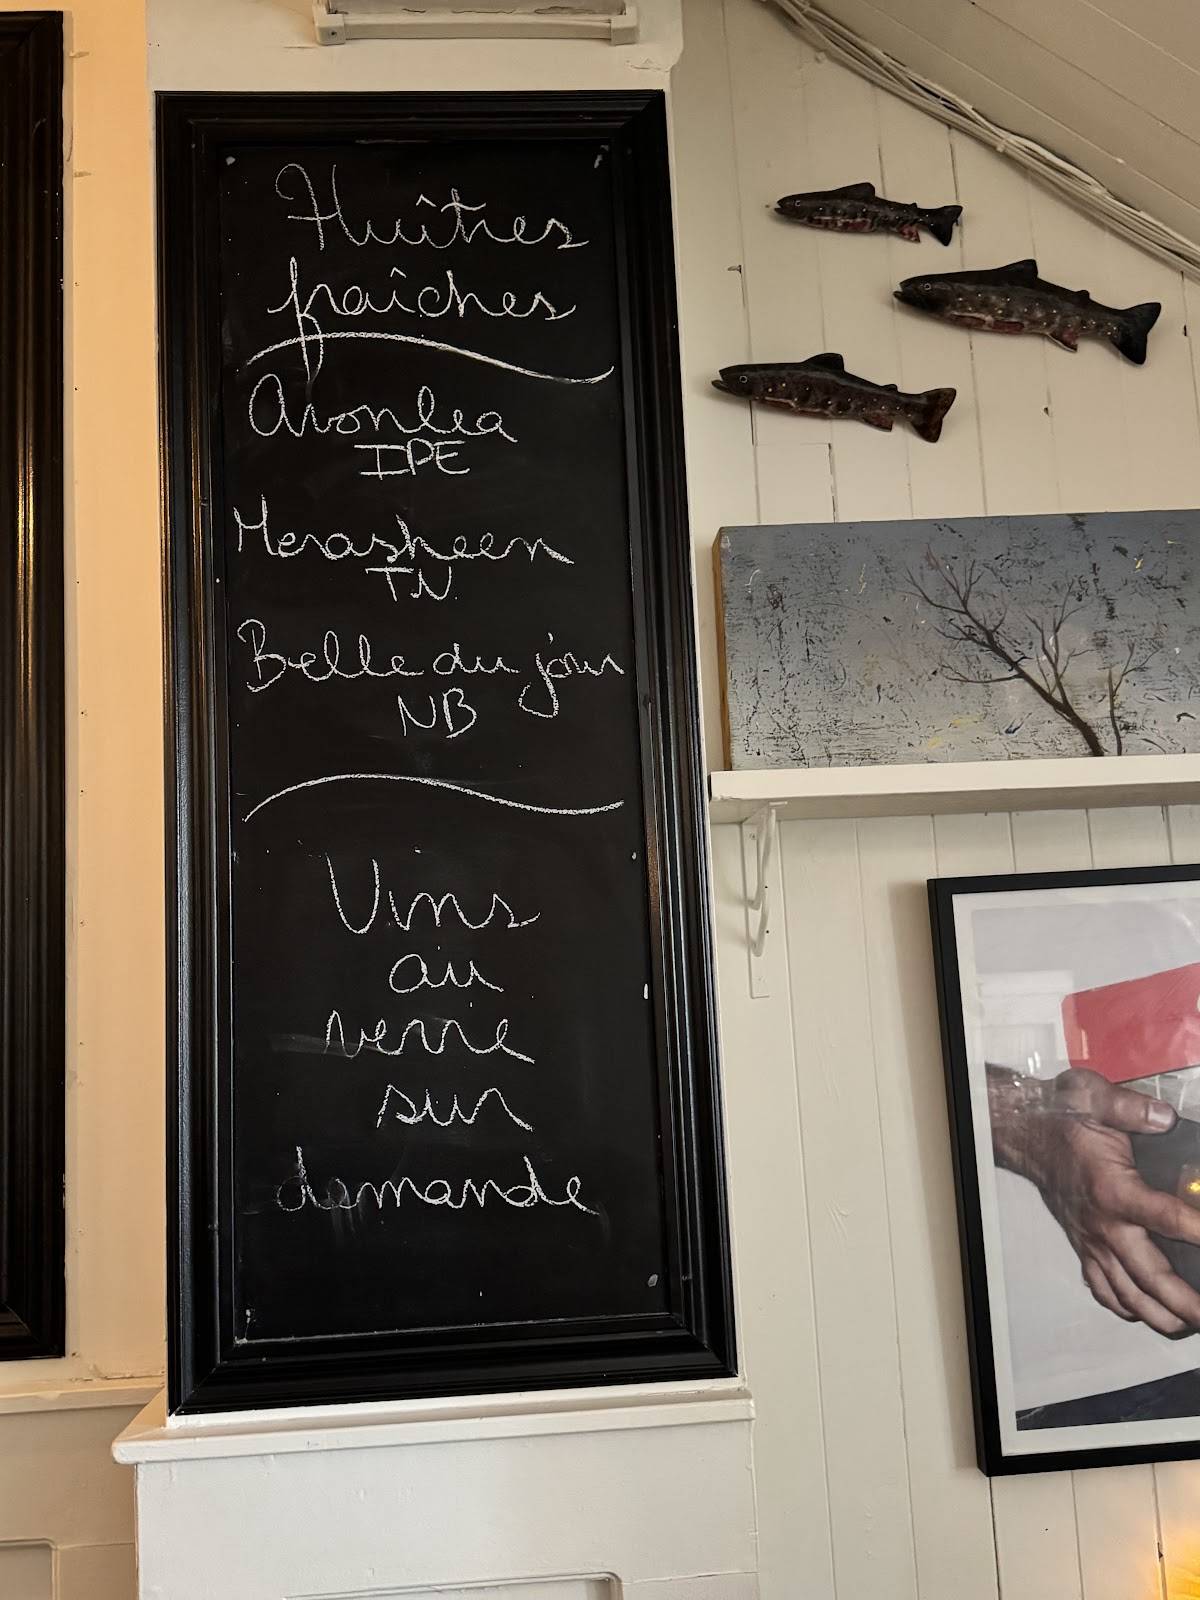 Huîtres
fraîches
Avonlea
IPE
Merasheen
TN
Belle du jour
NB
Vins
au
verre
sur
demande